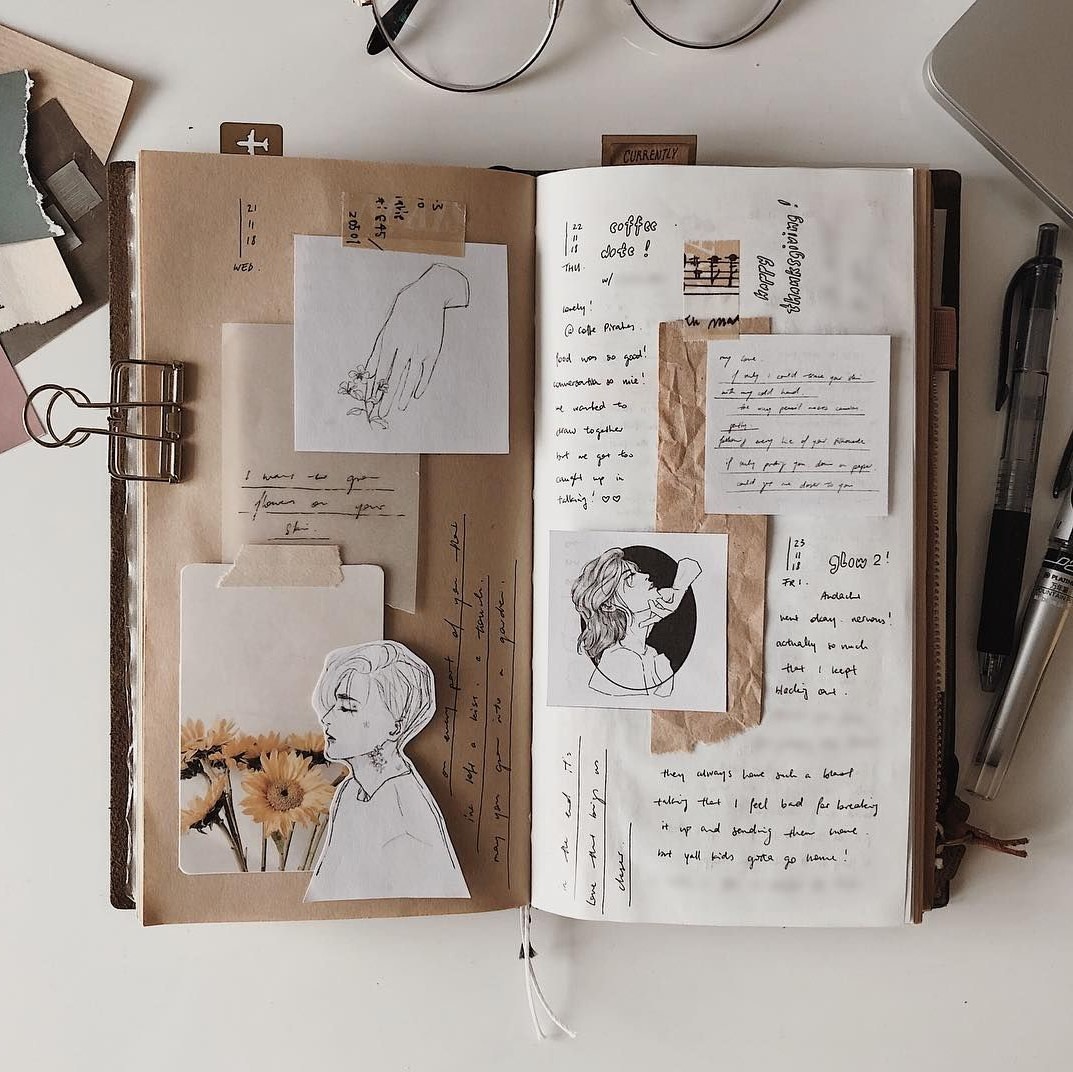 21
11
18
WED.
I want to grow
flowers on your
skin.
on every part of you that
i've left a kiss, a touch
may you grow into a garden.
CURRENTLY
22
11
18
THU.
coffee
date !
w/
lovely!
@ coffee Pirates.
food was so good!
conversation so nice!
we wanted to
draw together
but we got too
caught up in
talking! ♡♡
happy
thanksgiving !
my love.
if only i could trace your skin
with my cold hand
the way my pencil moves
following every line of your
if only putting you down on paper
could get me closer to you
23
11
18
FRI.
glow 2!
went okay. nervous!
actually so much
that I kept
blacking out.
in the end it's
love that brings us
closer.
they always have such a blast
talking that I feel bad for breaking
it up and sending them home.
but y'all kids gotta go home!
PLATINUM